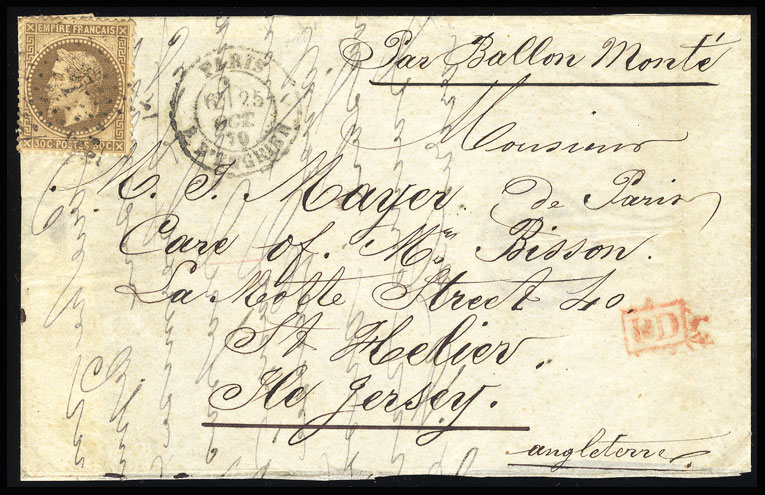 EMPIRE FRANÇAIS
30C·POSTES·30C
PARIS
6E 25
OCT
70
Par Ballon Monté
Monsieur
M. S. Mayer de Paris
Care of. Mrs Bisson.
La Motte Street 40.
St Helier.
Ile Jersey.
angleterre
PD